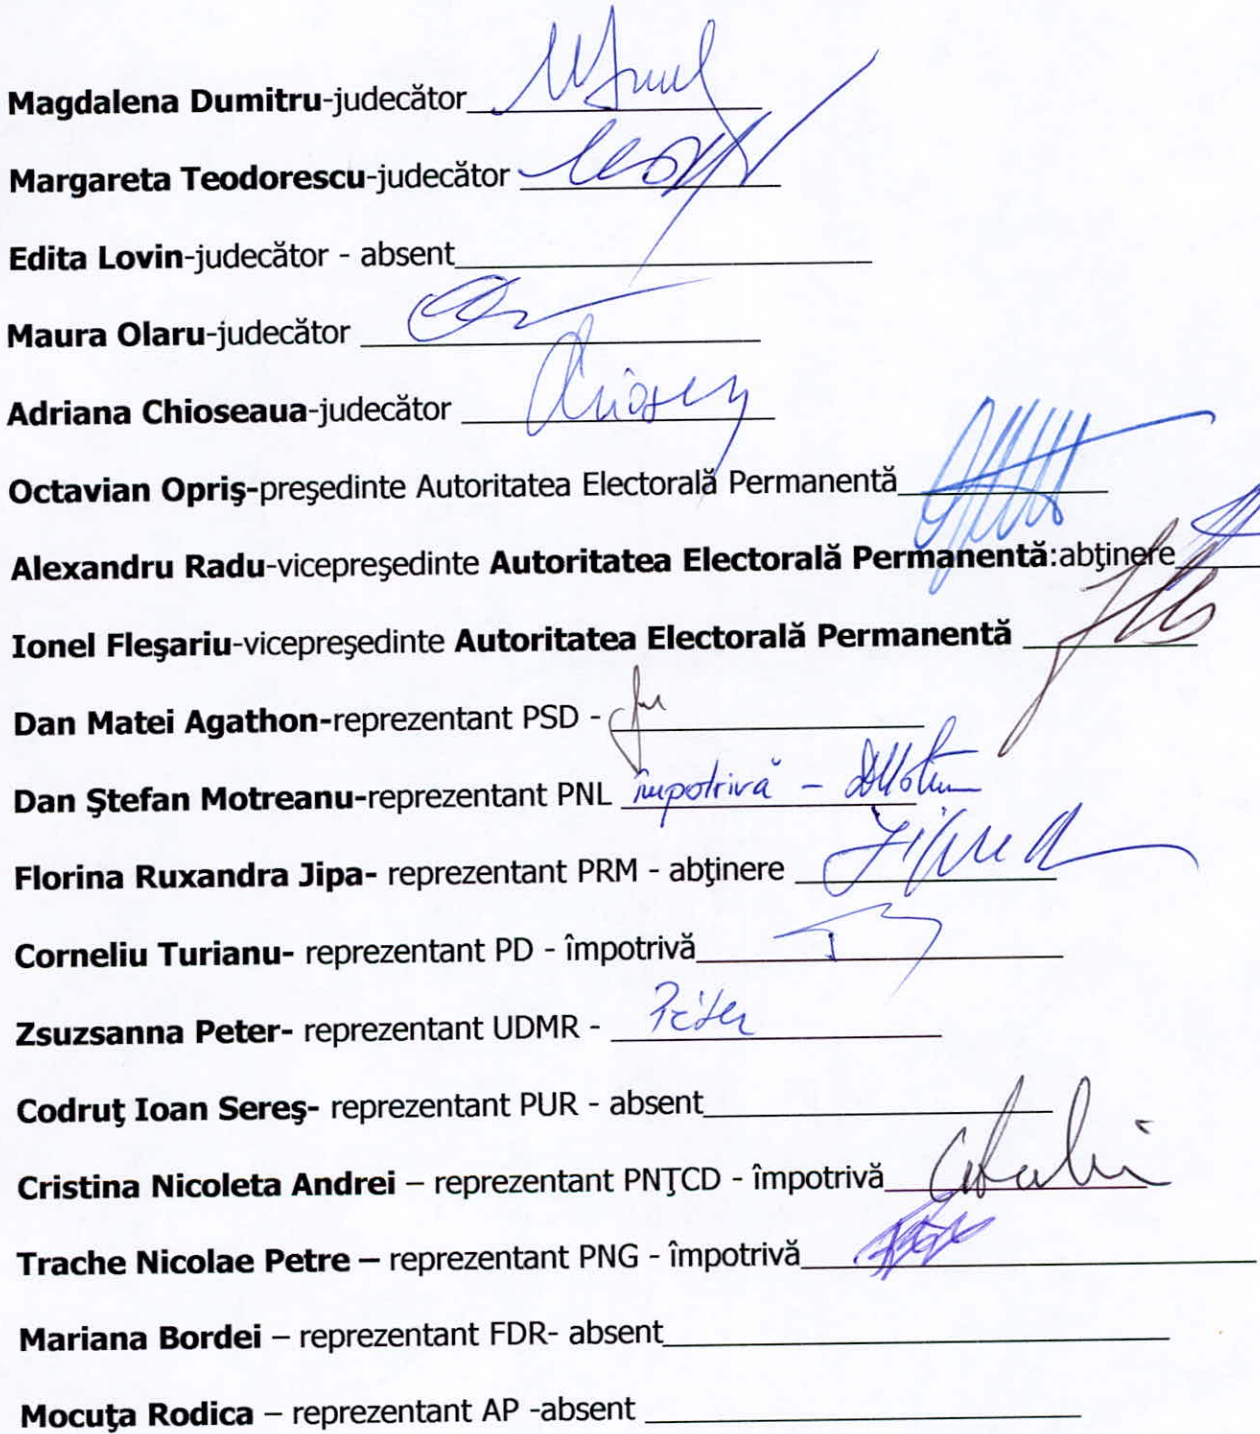 Magdalena Dumitru-judecător
Margareta Teodorescu-judecător
Edita Lovin-judecător - absent
Maura Olaru-judecător
Adriana Chioseaua-judecător
Octavian Opriş-preşedinte Autoritatea Electorală Permanentă
Alexandru Radu-vicepreşedinte Autoritatea Electorală Permanentă:abţinere
Ionel Fleşariu-vicepreşedinte Autoritatea Electorală Permanentă
Dan Matei Agathon-reprezentant PSD -
Dan Ştefan Motreanu-reprezentant PNL împotrivă -
Florina Ruxandra Jipa- reprezentant PRM - abţinere
Corneliu Turianu- reprezentant PD - împotrivă
Zsuzsanna Peter- reprezentant UDMR - Péter
Codruţ Ioan Sereş- reprezentant PUR - absent
Cristina Nicoleta Andrei – reprezentant PNŢCD - împotrivă
Trache Nicolae Petre – reprezentant PNG - împotrivă
Mariana Bordei – reprezentant FDR- absent
Mocuţa Rodica – reprezentant AP -absent